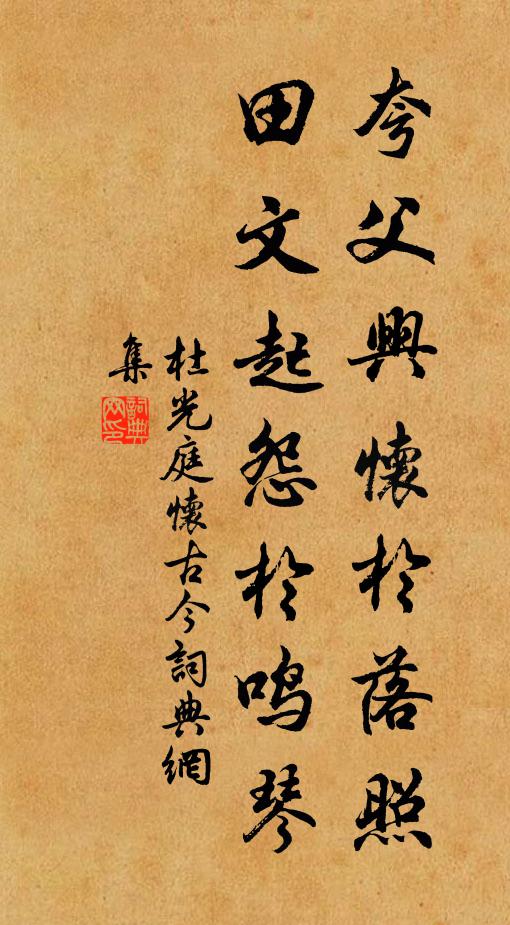 夸父興懷於落照
田文起怨於鸣琴
杜光庭懷古今詞典網
集
詞典
网印